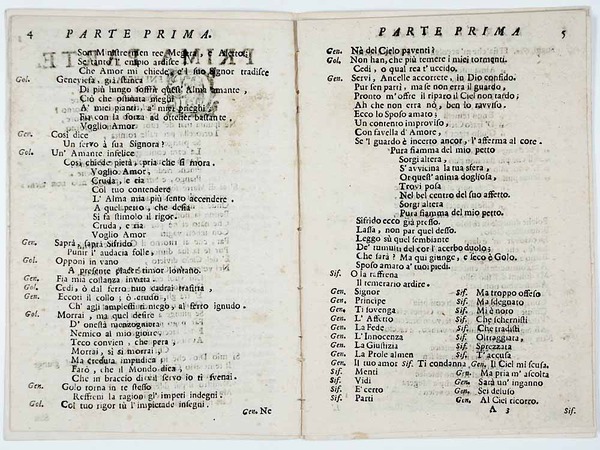 4 PARTE PRIMA.
Se tanto l' empio ardisce
Che Amor mi chiede, e'l suo Signor tradisce
Gol. Geneviefa, già stanca
Di più lungo soffrir quest' Alma amante,
Ciò che ostinata nieghi
A' miei pianti, a' miei prieghi,
Fia con la forza ad ottener bastante.
Voglio Amor
Gen. Così dice
Un servo à sua Signora?
Gol. Un' Amante infelice
Così chiede pietà, pria che si mora.
Voglio Amor,
Cruda, e ria
Col tuo contendere
L' Alma mia più sento accendere.
A quel petto, che desia
Si fà stimolo il rigor.
Cruda, e ria
Voglio Amor
Gen. Saprà, saprà Sifrido
Punir l' audacia folle,
Gol. Opponi in vano
A presente piacer timor lontano.
Gen. Fia mia costanza invitta.
Gol. Cedi, ò dal ferro tuo cadrai trafitta,
Gen. Eccoti il collo; ò crudo,
Ch' agl ampiessi ti niego, al ferro ignudo.
Gol. Morrai, ma quel desire
D' onestà menzogniera
Nemico al mio gioire,
Teco convien, che pera,
Morrai, sì si morrai,
Ma creduta impudica
Farò, che il Mondo dica,
Che in braccio di vil servo io ti svenai.
Gen. Golo torna in te stesso
Reffreni la ragion gl' impeti indegni.
Gol. Col tuo rigor tù l'impietade insegni.
Gen. Ne
PARTE PRIMA 5
Gen. Nè del Cielo paventi?
Gol. Non han, che più temere i miei tormenti.
Cedi, o qual rea t'uccido.
Gen. Servi, Ancelle accorrete, in Dio confido.
Pur sen parti, ma se non erra il guardo,
Pronto m' offre il riparo il Ciel non tardo;
Ah che non erra nò, ben lo ravviso,
Ecco lo Sposo amato;
Un contento improviso,
Con favella d' Amore,
Se 'l guardo è incerto ancor, l' afferma al core.
Pura fiamma del mio petto
Sorgi altera,
S' avvicina la tua sfera,
Or quest' anima dogliosa,
Trovi posa
Nel bel centro del suo affetto.
Sorgi altera
Pura fiamma del mio petto.
Sifrido ecco già presso.
Lassa, non par quel desso.
Leggo sù quel sembiante
De' tumulti del cor l' acerbo duolo;
Che farà? Ma qui giunge, e seco è Golo.
Sposo amato a' tuoi piedi.
Sif. O là raffrena
Il temerario ardire.
Gen. Signor Sif. Ma troppo offeso
Gen. Principe Sif. Ma sdegnato
Gen. Ti sovenga Sif. Mi è noto
Gen. L' Affetto Sif. Che schernisti
Gen. La Fede Sif. Che tradisti
Gen. L' Innocenza Sif. Oltraggiata,
Gen. La Giustizia Sif. Sprezzata
Gen. La Prole almen Sif. T' accusa
Gen. Il tuo amor Sif. Ti condanna Gen. Il Ciel mi scusa.
Sif. Menti Gen. Ma pria m' ascolta
Sif. Vidi Gen. Sarà un' inganno
Sif. E' certo Gen. Sei deluso
Sif. Parti Gen. Al Ciel ricorro.
A 3 Sif.